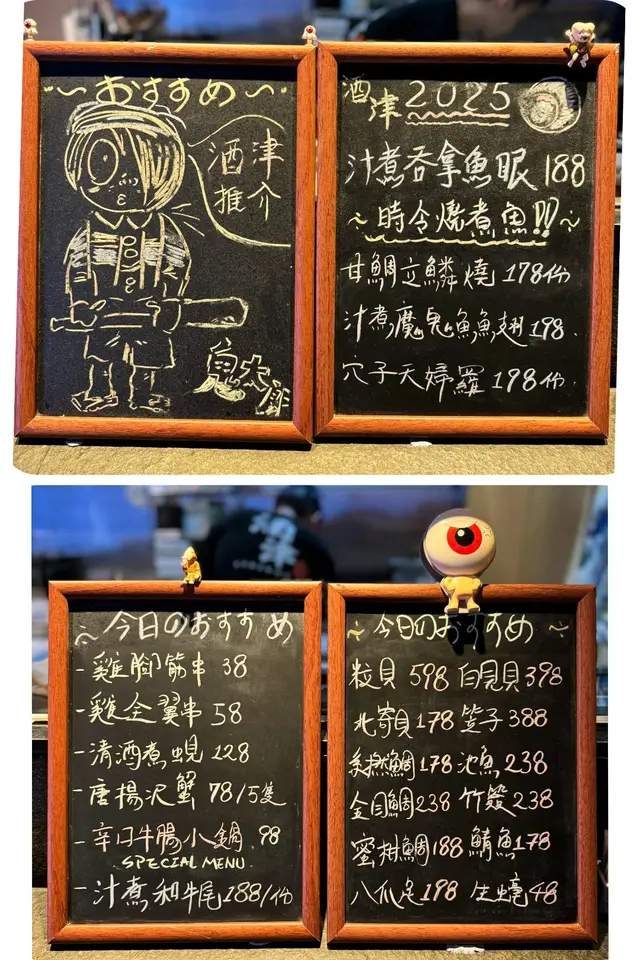 ~おすすめ~
酒津
推介
鬼太郎
酒津 2025
汁煮吞拿魚眼 188
~時令燒煮魚!!~
甘鯛立鱗燒 178/份
汁煮魔鬼魚魚翅 198
穴子天婦羅 198/份
~今日のおすすめ
-雞腳筋串 38
-雞全翼串 58
-清酒煮蜆 128
-唐揚沢蟹 78/5隻
-辛口牛腸小鍋 98
SPECIAL MENU
-汁煮和牛尾 188/份
~今日のおすすめ~
粒貝 598 白見貝 398
北寄貝 178 笠子 388
鯛 178 池魚 238
金目鯛 238 竹筴 238
蜜柑鯛 188 鯖魚 178
八爪魚 198 生蠔 48